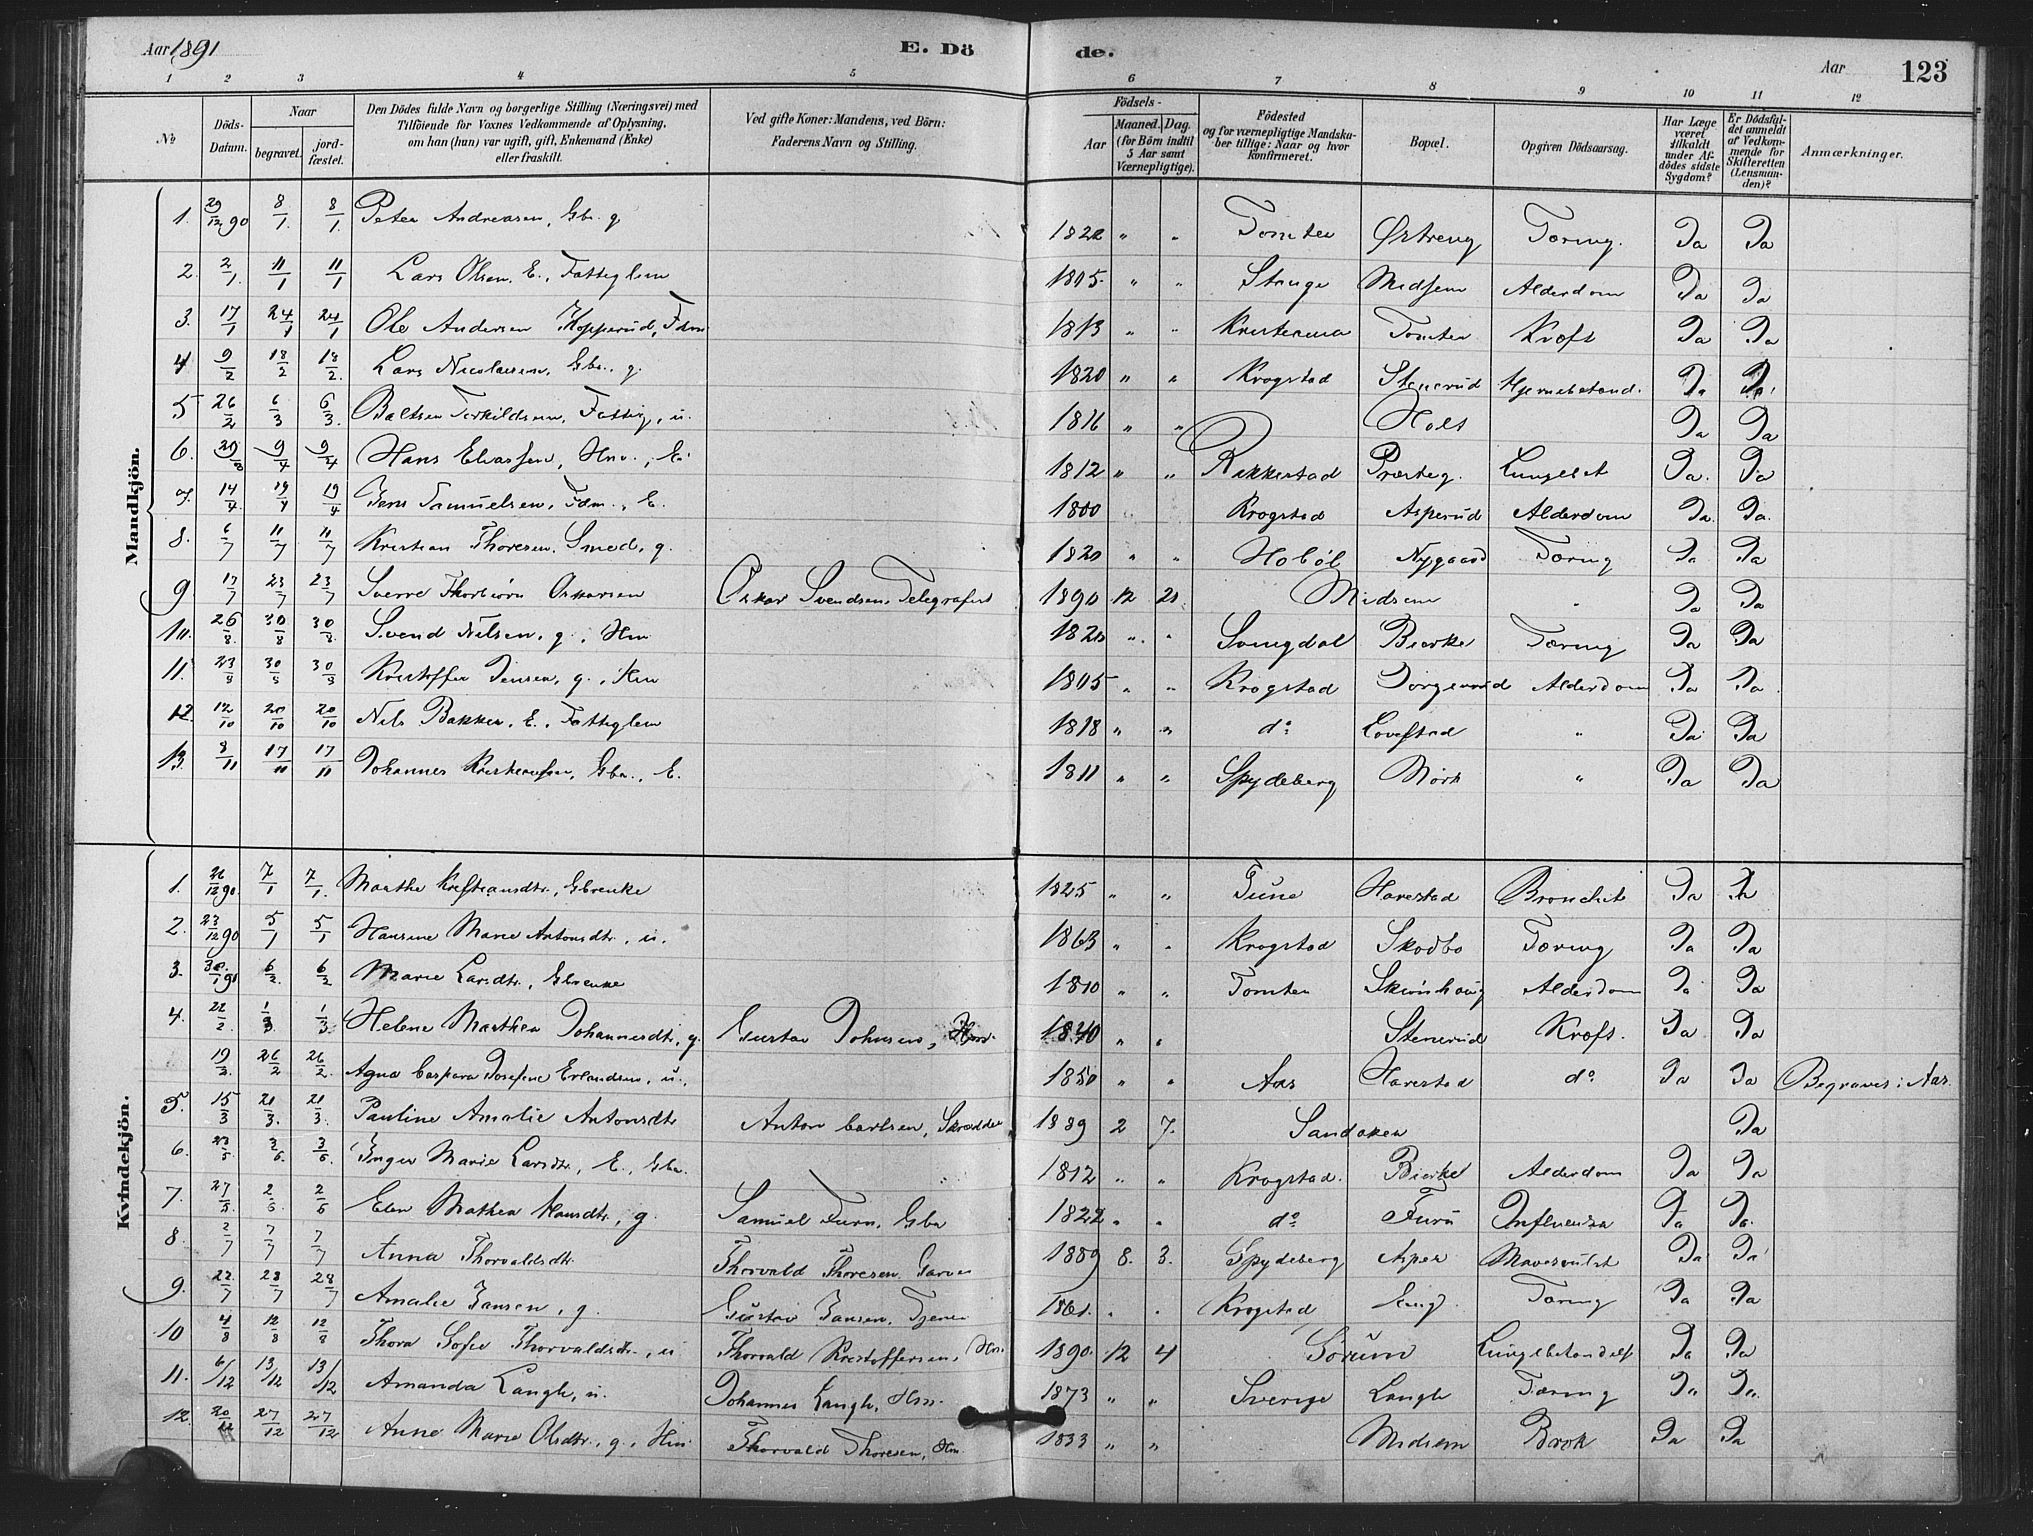 Aar 1891
E. Dö
de.
Aar
123
1 2 3 4 5 6 7 8 9 10 11 12
№
Döds-Datum.
Naar
begravet.
jord-fæstet.
Den Dödes fulde Navn og borgerlige Stilling (Næringsvei) med
Tilföiende for Voxnes Vedkommende af Oplysning,
om han (hun) var ugift, gift, Enkemand (Enke)
eller fraskilt.
Ved gifte Koner: Mandens, ved Börn:
Faderens Navn og Stilling.
Födsels-
Aar
Maaned. Dag.
(for Börn indtil
5 Aar samt
Værnepligtige).
Födested
og for værnepligtige Mandska-
ber tillige: Naar og hvor
konfirmeret.
Bopæl.
Opgiven Dödsaarsag.
Har Læge
været
tilkaldt
under Af-
dödes sidste
Sygdom?
Er Dödsfal-
det anmeldt
af Vedkom-
mende for
Skifteretten
(Lensman-
den)?
Anmærkninger.
Mandkjön.
1. 29/12 90 8/1 8/1 Peter Andreasen, Gbr. g 1822 " " Tomter Østreng Tæring. Ja Ja
2. 2/1 11/1 11/1 Lars Olsen, E., Fattiglem 1805 " " Stange Midsem Alderdom Ja Ja
3. 17/1 24/1 24/1 Ole Andersen Kopperud, Fdm 1813 " " Kristiania Tomter Kræft Ja Ja
4 9/2 18/2 18/2 Lars Nicolaisen, Gbr., g. 1820 " " Krogstad Stenerud Hjernebetænd. Ja Ja
5 26/2 6/3 6/3 Baltser Torkildsen, Fattig, u. 1816 " " Holt Ja Ja
6. 29/3 9/4 9/4 Hans Eliassen, Hm., E. 1812 " " Rakkestad Præsteg. Lungebet Ja Ja
7. 14/4 19/4 19/4 Jens Samuelsen, Fdm., E. 1800 Krogstad Asperud Alderdom Ja Ja
8. 6/7 11/7 11/7 Kristian Thoresen, Smed, g. 1820 " " Hobøl Nygaard Tæring Ja Ja
9 17/7 23/7 23/7 Sverre Thorbiørn Oskarsen Oskar Svendsen, Telegrafist 1890 12 21. Midsem " Ja Ja
10. 26/8 30/8 30/8 Svend Nilsen, g., Hm 1820 " " Svingdal Bierke Tæring Ja Ja
11. 23/8 30/8 30/8 Kristoffer Jensen, g., Hm 1805 " " Krogstad Alderdom Ja Ja
12. 12/10 20/10 20/10 Nils Bakker, E., Fattiglem 1818 " " do Lovestad " Ja Ja
13. 8/11 17/11 17/11 Johannes Kristiansen, Gbr., E. 1811 " " Spydeberg Mörk " Ja Ja
Kvindekjön.
1. 26/12 90. 7/1 7/1. Marthe Kristiansdtr., Gbrenke 1825 " " Tune Harestad Bronchit Ja Ja
2. 23/12 90 5/1 5/1 Hansine Marie Antonsdtr., u. 1863 " " Krogstad Skodbo Tæring Ja Ja
3. 30/1 91 6/2 6/2 Marie Larsdtr., Gbrenke 1810 " " Tomter Skiønhaug Alderdom Ja Ja
4. 22/2 1/3 1/3 Helene Marthea Johannesdtr, g. Gustav Johnsen, Hm. 1840 " " Stenerud Kræft. Ja Ja
19/2 26/2 26/2 Agna Caspara Josefine Erlandsen, u., 1850 " " Aas Harestad do Ja Ja Begraves i Aas.
5. 15/3 21/3. 21/3. Pauline Amalie Antonsdtr Anton Carlsen, Skrædder 1889 2 7. Sandaker Ja
6. 23/5 3/6. 3/6. Inger Marie Larsdtr., E., Gbr. 1812 " " Krogstad. Bierke Alderdom Ja Ja
7. 27/5 2/6 2/6 Elen Mathea Hansdtr., g. Samuel Furu, Gbr 1822 " " do Furu Influenza Ja Ja.
8. 2/7 7/7 7/7 Anna Thorvaldsdtr. Thorvald Thoresen, Garver 1889 8. 3. Spydeberg Asper Mavesvulst Ja Ja
9. 22/7 28/7 28/7 Amalie Jansen, g. Gustav Jansen, Tjener 1861. " " Krogstad Eng. Tæring Ja Ja
10 4/8 12/8 12/8 Thora Sofie Thorvaldsdtr., u Thorvald Kristoffersen, Hm. 1890 12 4 Sörum Lungebetændelse Ja Ja
11. 6/12 13/12 13/12 Amanda Langli, u. Johannes Langli, Hm. 1873 " " Sverige Langli Tæring Ja Ja
12. 20/12 27/12 27/12 Anne Marie Olsdtr., g., Hm Thorvald Thoresen, Hm. 1833 " " Midsem Brok Ja Ja